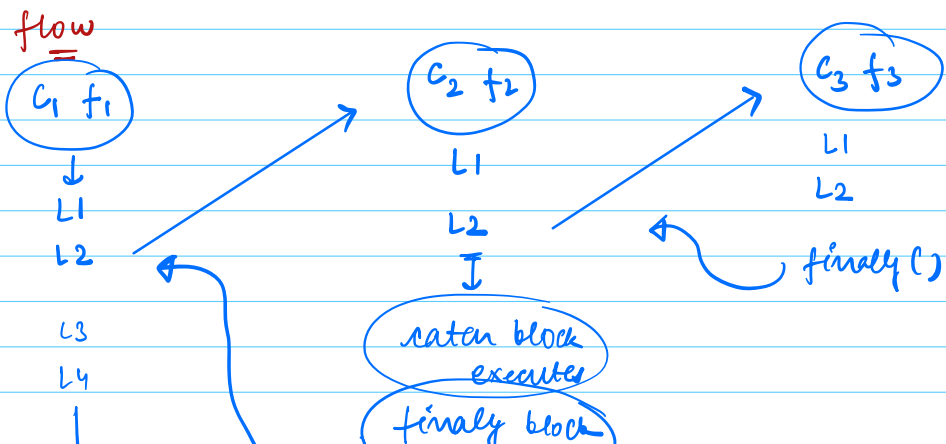 flow
C1 f1
L1
L2
L3
L4
C2 f2
L1
L2
catch block
executes
finaly block
C3 f3
L1
L2
finally()